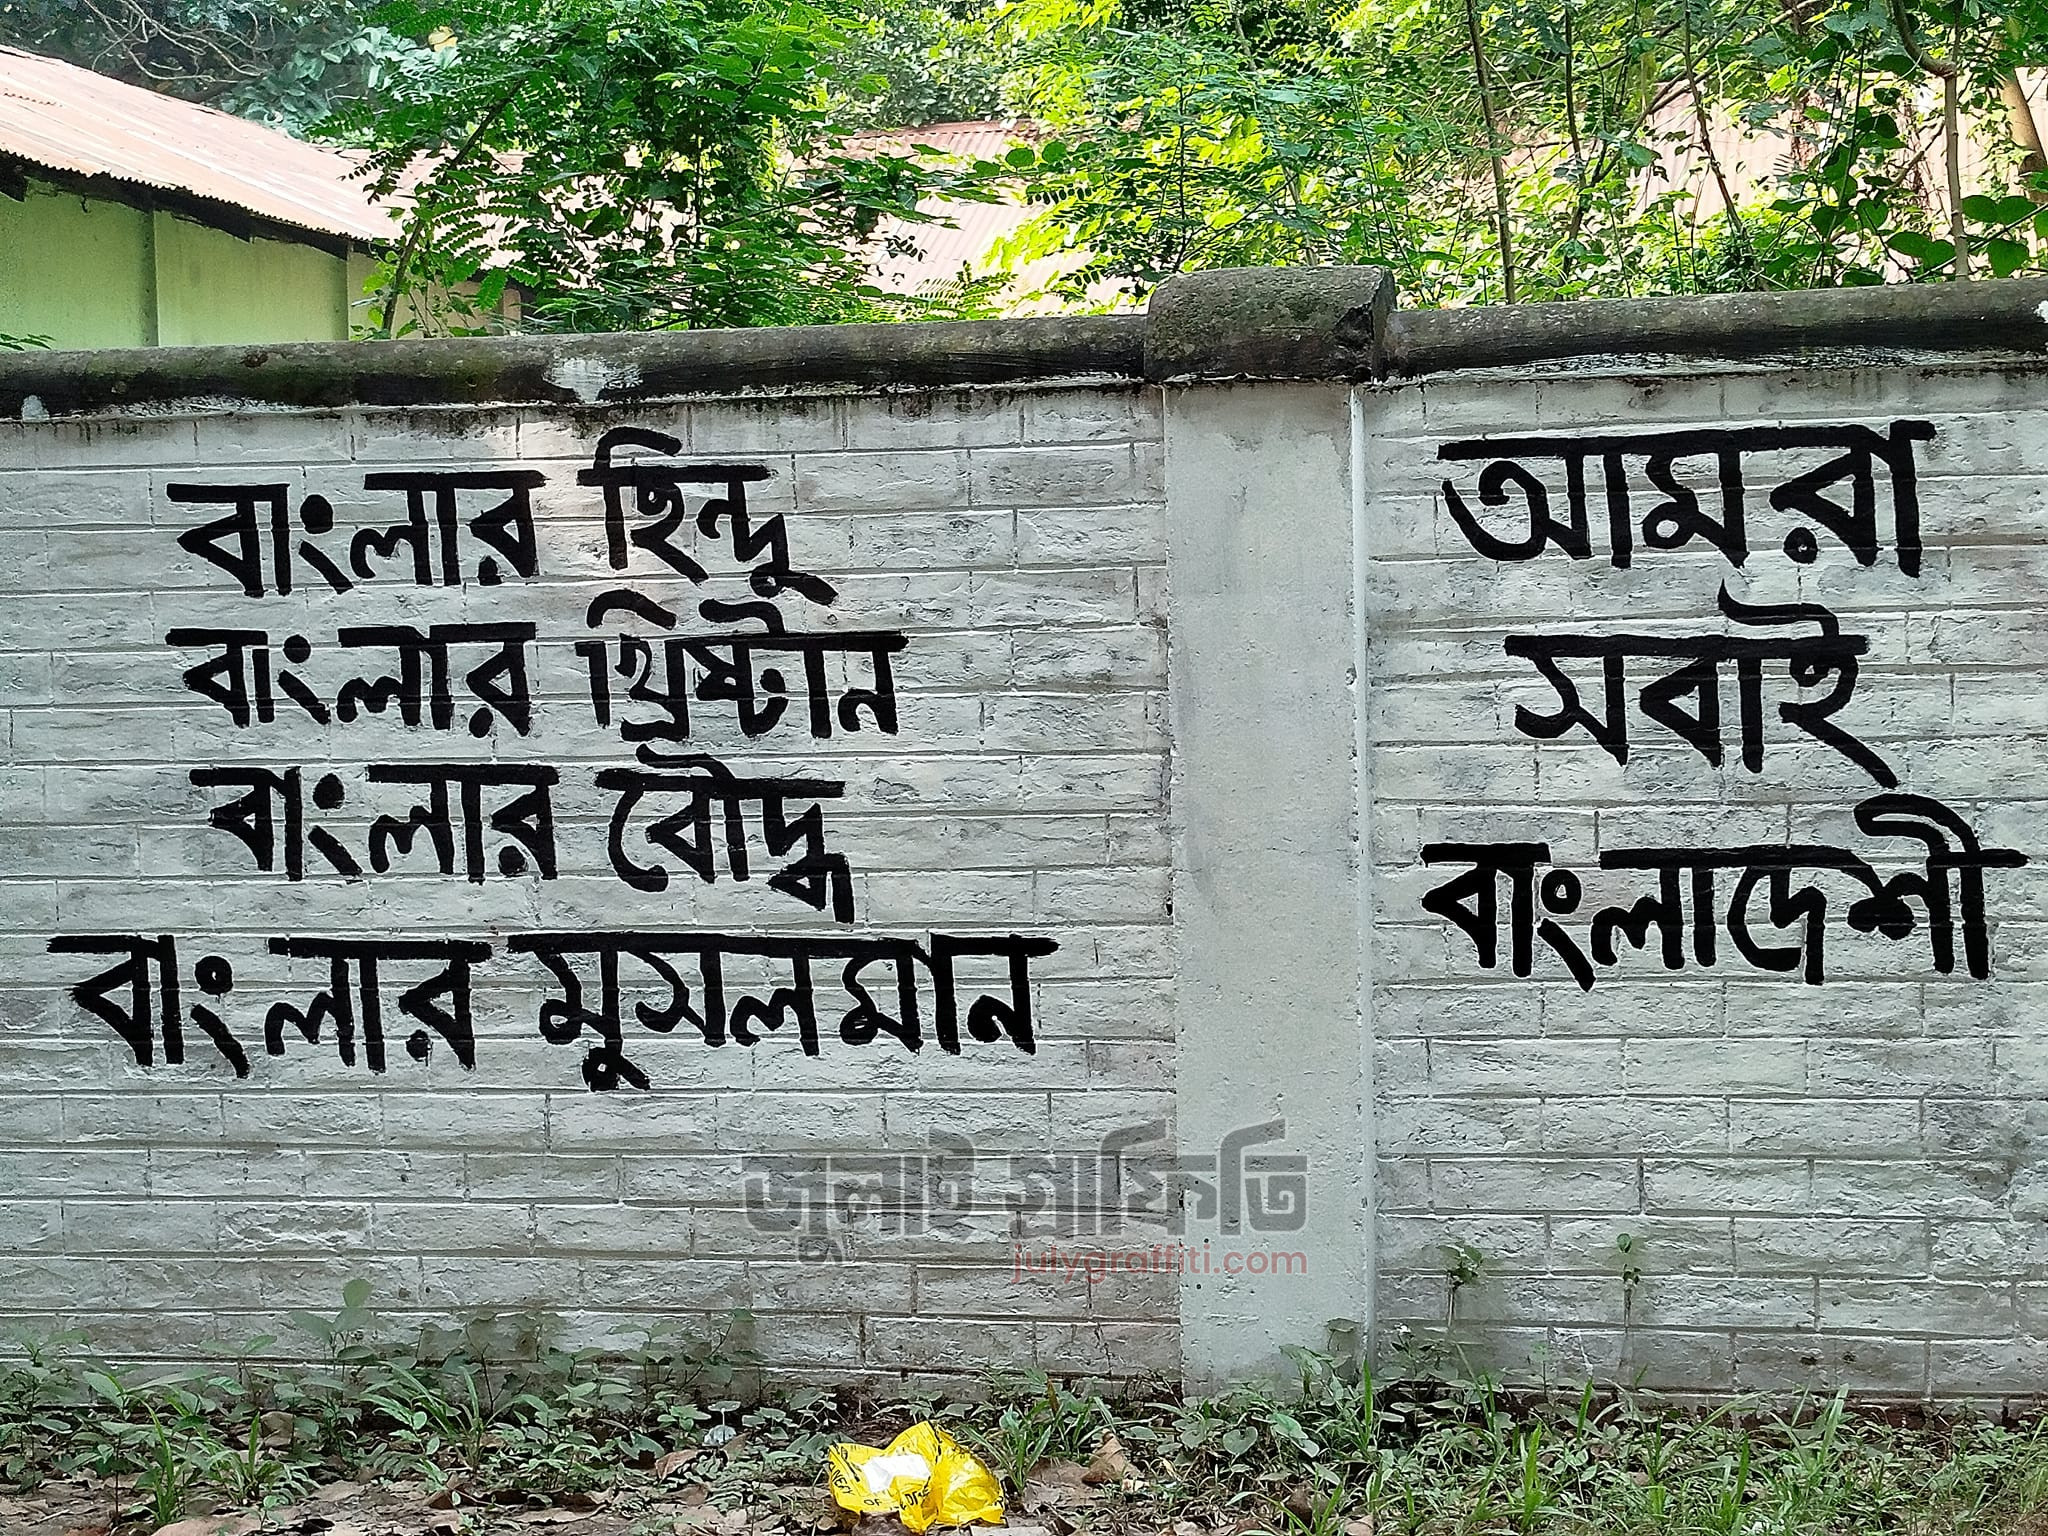 বাংলার হিন্দু
বাংলার খ্রিষ্টান
বাংলার বৌদ্ধ
বাংলার মুসলমান
আমরা
সবাই
বাংলাদেশী
জুলাই গ্রাফিতি
julygraffiti.com